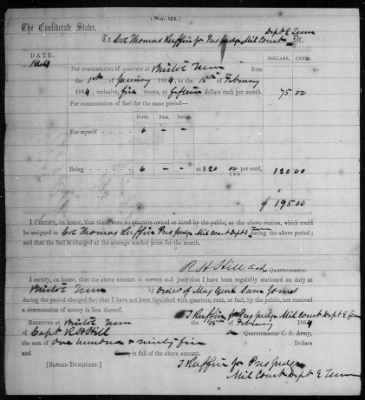 (No. 21.)
The Confederate States,
To Col Thomas Ruffin Jr Pres Judge Mil Court Dept E Tenn Dr.
DATE. DOLLARS. CENTS.
1864
For commutation of quarters at Bristol Tenn from
the 1st of January 1864, to the 15th of February
1864, inclusive, five rooms, at fifteen dollars each per month. 75 00
For commutation of fuel for the same period—
Cords.
For myself 6 — —
Being 6 — at $20 00 per cord, 120.00
$ 195.00
I CERTIFY, on honor, that there were no quarters owned or hired by the public, at the above station, which could
be assigned to Col Thomas Ruffin Pres Judge Mil Court Dept E Tenn during the above period;
and that the fuel is charged at the average market price for the month.
R H Hill Quartermaster.
I certify, on honor, that the above account is correct and just; that I have been regularly stationed on duty at
Bristol Tenn by order of Maj Genl Sam Jones
during the period charged for; that I have not been furnished with quarters, rent, or fuel, by the public, nor received
a commutation of money in lieu thereof.
T Ruffin Jr Pres Judge Mil Court Dept E Tenn
RECEIVED at Bristol Tenn the 15th of February 1864
of Capt R H Hill Quartermaster C. S. Army,
the sum of One hundred & ninety five Dollars,
and cents, in full of the above account.
[SIGNED DUPLICATE.]
T Ruffin Jr Pres Judge
Mil Court Dept E Tenn